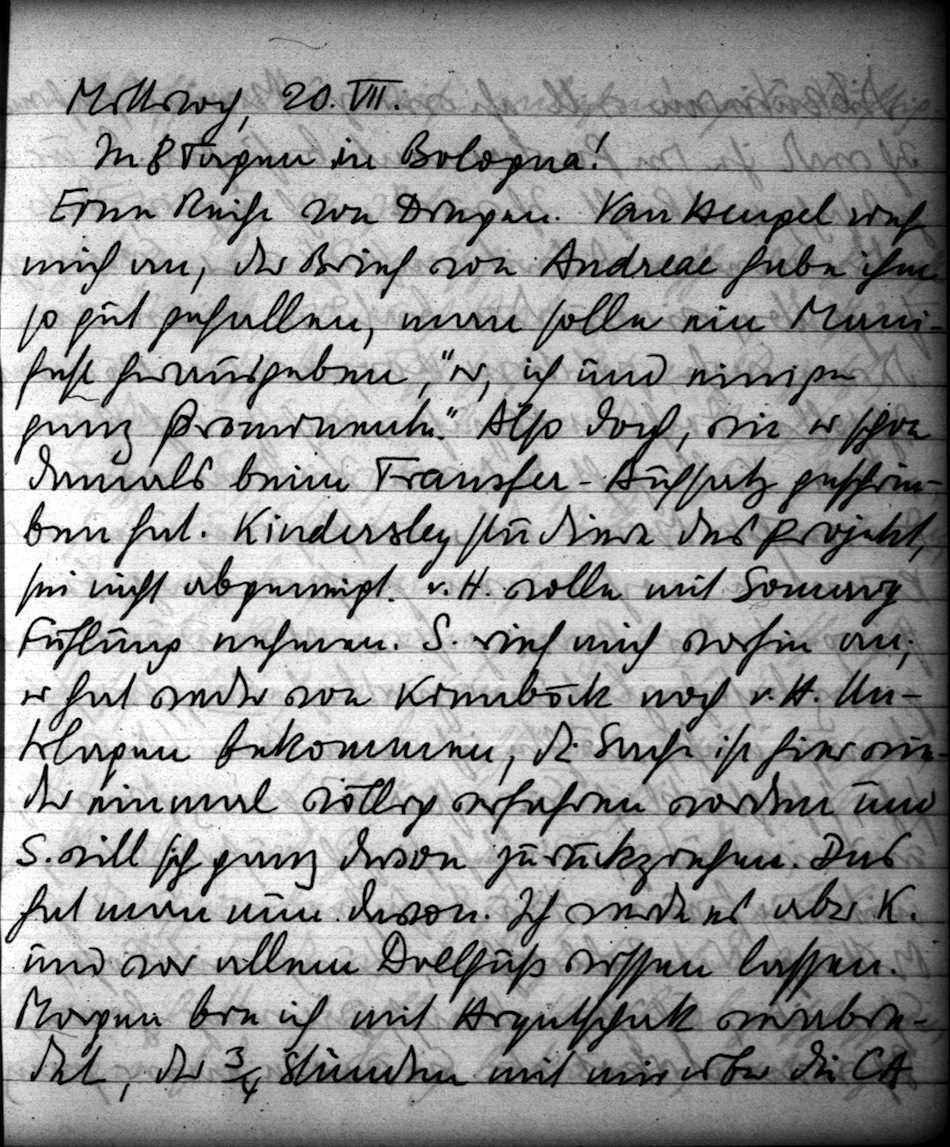 Mittwoch, 20. VII.
In 8 Tagen in Bologna!
Eine Reihe von Dingen. Van Hengel rief
mich an, der Brief von Andreae habe ihm
so gut gefallen, man solle ein Mani-
fest herausgeben, "er, ich und einige
ganz Prominente." Also doch, wie er schon
damals beim Transfer-Aufsatz geschrie-
ben hat. Kindersley studiere das Projekt,
sei nicht abgeneigt. v. H. wolle mit Somary
Fühlung nehmen. S. rief mich vorhin an;
er hat weder von Krumböck noch v. H. Un-
terlagen bekommen, die Sache ist hier wie-
der einmal völlig verfahren worden und
S. will sich ganz davon zurückziehen. Das
hat man nun davon. Ich werde es aber K.
und vor allem Dollfuß wissen lassen.
Morgen bin ich mit verabre-
det, der 3/4 Stunden mit mir über die CA